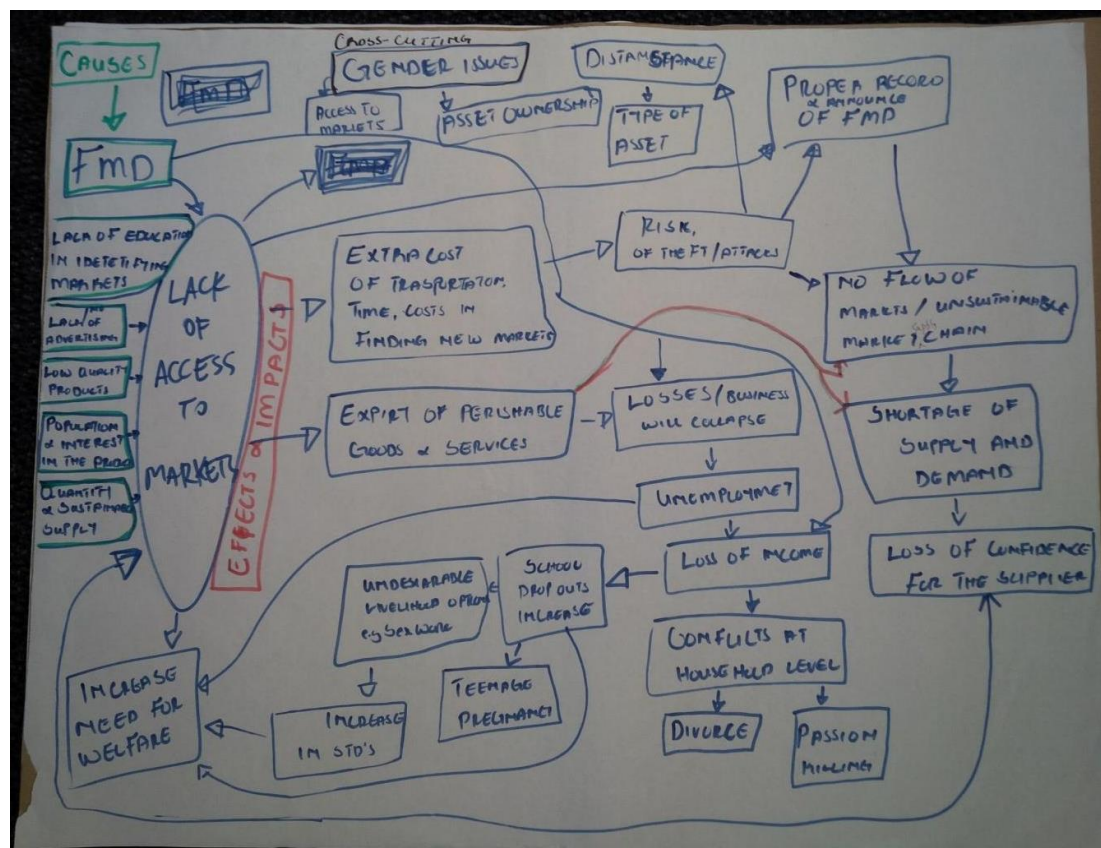 CAUSES
FMD
CROSS-CUTTING
GENDER ISSUES
ACCESS TO
MARKETS
ASSET OWNERSHIP
FMD
DISTANCE
TYPE OF
ASSET
PROPER RECORD
& ANNOUNCE
OF FMD
FMD
LACK OF EDUCATION
IN IDETETIFYING
MARKETS
LACK OF
ADVERTISING
LOW QUALITY
PRODUCTS
POPULATION
& INTEREST
IN THE PROD
QUANTITY
&
SUPPLY
LACK
OF
ACCESS
TO
MARKETS
EFFECTS & IMPACTS
EXTRA COST
OF TRASPORTATION.
TIME, COSTS IN
FINDING NEW MARKETS
RISK,
OF THEFT/ATTACKS
NO FLOW OF
MARKTS/UNSUSTAINABLE
MARKET CHAIN
EXPIRT OF PERISHABLE
GOODS & SERVICES
LOSSES/BUSINESS
WILL COLLAPSE
SHORTAGE OF
SUPPLY AND
DEMAND
UNEMPLOYMET
LOSS OF INCOME
LOSS OF CONFIDENCE
FOR THE SUPPLIER
UNDESIARABLE
e.g Sex Work
SCHOOL
DROP OUTS
INCREASE
CONFLICTS AT
HOUSEHOLD LEVEL
INCREASE
NEED FOR
WELFARE
INCREASE
IN STD'S
TEENAGE
PREGNANCY
DIVORCE
PASSION
KILLING